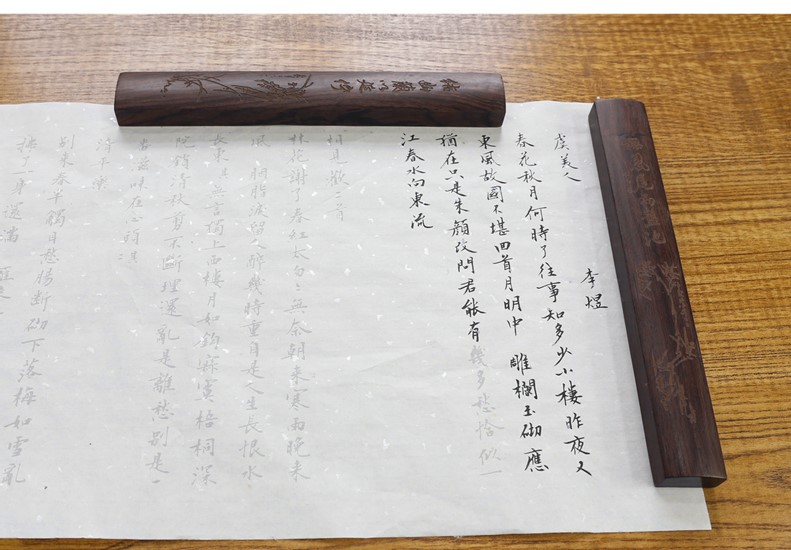 虞美人
李煜
春花秋月何時了往事知多少小樓昨夜又
東風故國不堪回首月明中 雕欄玉砌應
猶在只是朱顏改問君能有幾多愁恰似一
江春水向東流
相見歡二首
林花謝了春紅太匆〻無奈朝來寒雨晚來
風胭脂淚留人醉幾時重自是人生長恨水
長東 無言獨上西樓月如鉤寂寞梧桐深
院鎖清秋剪不斷理還亂是離愁別是一
番滋味在心頭
清平樂
別來春半觸目愁腸斷砌下落梅如雪亂
拂了一身還滿 雁來